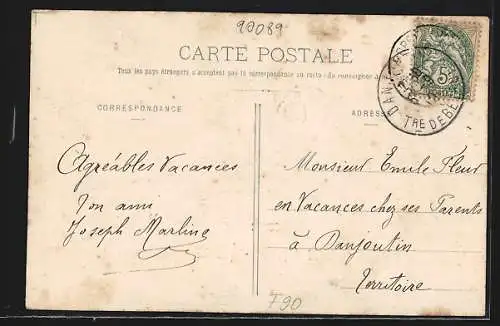 90089
CARTE POSTALE
Tous les pays étrangers n'acceptent pas la correspondance au recto (Se renseigner à
CORRESPONDANCE
ADRESSE
5
TRE DE BE
Agréables Vacances
Ton ami
Joseph Marline
Monsieur Emile Fleur
en Vacances chez ses Parents
à Danjoutin
Territoire
F90